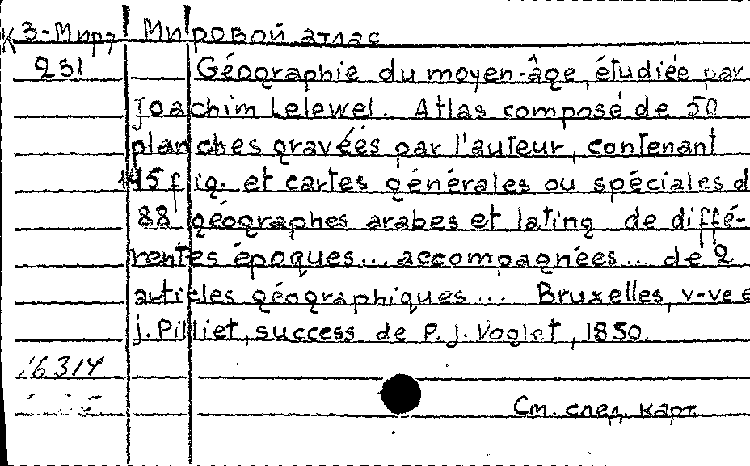 К 3-Мир7 Мировой атлас
231 Géographie du moyen-âge, étudiée par
Joachim Lelewel. Atlas composé de 50
planches gravées par l'auteur, contenant
145 fig. et cartes générales ou spéciales d
88 géographes arabes et latins de diffé-
rentes époques... accompagnées... de 2
articles géographiques... Bruxelles, v-ve e
j. Pilliet, success de P. J. Voglet, 1850.
16314
См. след. карт.